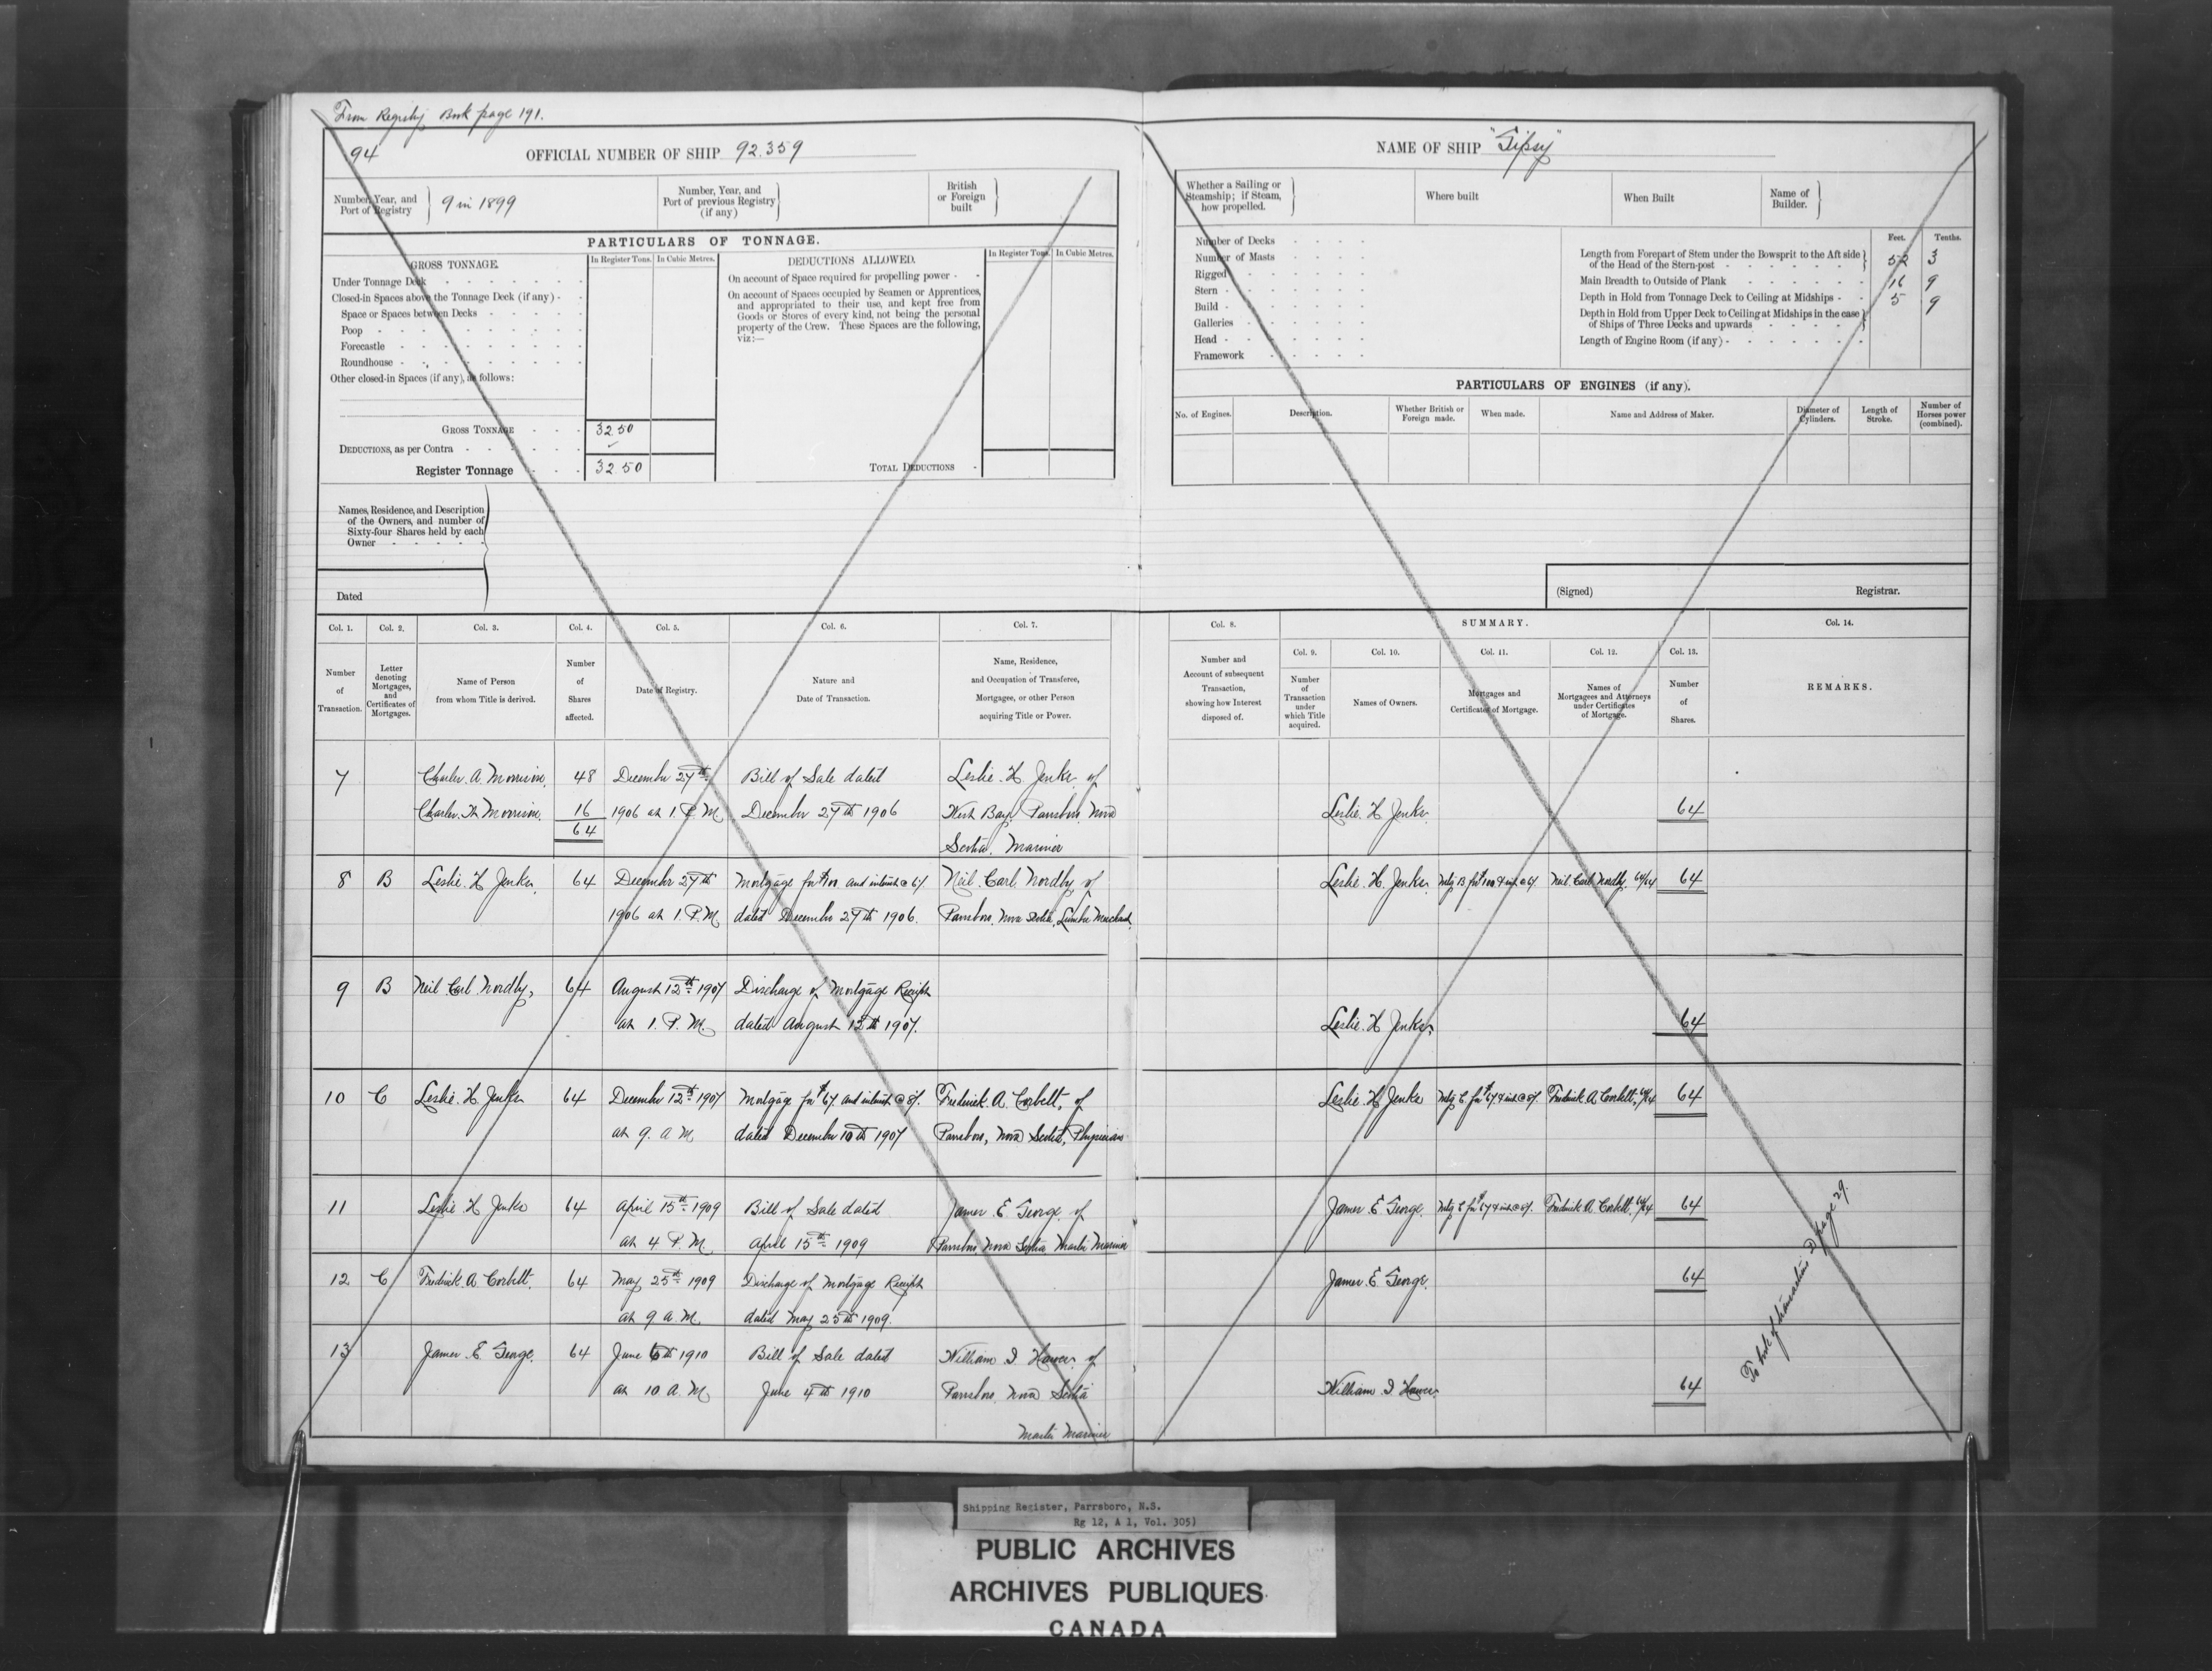 From Registry Book page 191.
94
OFFICIAL NUMBER OF SHIP 92.359
Number, Year, and Port of Registry } 9 in 1899
Number, Year, and Port of previous Registry (if any) }
British or Foreign built }
PARTICULARS OF TONNAGE.
GROSS TONNAGE.
In Register Tons. In Cubic Metres.
Under Tonnage Deck
Closed-in Spaces above the Tonnage Deck (if any)
Space or Spaces between Decks
Poop
Forecastle
Roundhouse
Other closed-in Spaces (if any), as follows:
GROSS TONNAGE 32.50
DEDUCTIONS, as per Contra
Register Tonnage 32.50
DEDUCTIONS ALLOWED.
In Register Tons. In Cubic Metres.
On account of Space required for propelling power
On account of Spaces occupied by Seamen or Apprentices,
and appropriated to their use, and kept free from
Goods or Stores of every kind, not being the personal
property of the Crew. These Spaces are the following,
viz:—
TOTAL DEDUCTIONS
Names, Residence, and Description
of the Owners, and number of
Sixty-four Shares held by each
Owner
Dated
NAME OF SHIP "Gipsy"
Whether a Sailing or Steamship; if Steam, how propelled. }
Where built
When Built
Name of Builder. }
Number of Decks
Number of Masts
Rigged
Stern
Build
Galleries
Head
Framework
Feet. Tenths.
Length from Forepart of Stem under the Bowsprit to the Aft side
of the Head of the Stern-post 52 3
Main Breadth to Outside of Plank 16 9
Depth in Hold from Tonnage Deck to Ceiling at Midships 5 9
Depth in Hold from Upper Deck to Ceiling at Midships in the case
of Ships of Three Decks and upwards
Length of Engine Room (if any)
PARTICULARS OF ENGINES (if any).
No. of Engines. Description. Whether British or Foreign made. When made. Name and Address of Maker. Diameter of Cylinders. Length of Stroke. Number of Horses power (combined).
(Signed) Registrar.
Col. 1. Col. 2. Col. 3. Col. 4. Col. 5. Col. 6. Col. 7. Col. 8. SUMMARY. Col. 14.
Col. 9. Col. 10. Col. 11. Col. 12. Col. 13.
Number of Transaction.
Letter denoting Mortgages, and Certificates of Mortgages.
Name of Person from whom Title is derived.
Number of Shares affected.
Date of Registry.
Nature and Date of Transaction.
Name, Residence, and Occupation of Transferee, Mortgagee, or other Person acquiring Title or Power.
Number and Account of subsequent Transaction, showing how Interest disposed of.
Number of Transaction under which Title acquired.
Names of Owners.
Mortgages and Certificates of Mortgage.
Names of Mortgagees and Attorneys under Certificates of Mortgage.
Number of Shares.
REMARKS.
7 Charles. A. Morrison. 48 December 27th Bill of Sale dated Leslie. H. Jenks. of
Charles. Morrison. 16 1906 at 1. P. M. December 27th 1906 West Bay, Parrsboro, Nova Leslie. H. Jenks. 64
64 Scotia. Mariner
8 B Leslie. H. Jenks. 64 December 27th Mortgage for $100 and interest @ 6% Neil. Carl. Nordby, of Leslie. H. Jenks. Mtg B for $100 & int @ 6%. Neil. Carl. Nordby. 64/64 64
1906 at 1. P. M. dated December 27th 1906. Parrsboro, Nova Scotia, Lumber Merchant.
9 B Neil Carl Nordby, 64 August 12th 1907 Discharge of Mortgage Receipt
at 1. P. M. dated August 12th 1907. Leslie. H. Jenks. 64
10 C Leslie. H. Jenks 64 December 12th 1907 Mortgage for $67. and interest @ 8%. Frederick. A. Corbett, of Leslie H Jenks Mtg C for $67 & int @ 8%. Frederick A. Corbett, 64/64 64
at 9. A. M. dated December 10th 1907 Parrsboro, Nova Scotia, Physician
11 Leslie H Jenks 64 April 15th 1909 Bill of Sale dated James. E. George. of James. E George. Mtg C for $67 & int @ 8%. Frederick A. Corbett. 64/64 64
at 4 P. M. April 15th 1909 Parrsboro, Nova Scotia Master Mariner
12 C Frederick. A. Corbett. 64 May 25th 1909 Discharge of Mortgage Receipt James. E George. 64
at 9 A. M. dated May 25th 1909.
13 James. E. George. 64 June 6th 1910 Bill of Sale dated William of
at 10. A. M June 4th 1910 Parrsboro, Nova Scotia William 64
Master Mariner
To book of transactions D page 29.
Shipping Register, Parrsboro, N.S.
Rg 12, A 1, Vol. 305)
PUBLIC ARCHIVES
ARCHIVES PUBLIQUES
CANADA